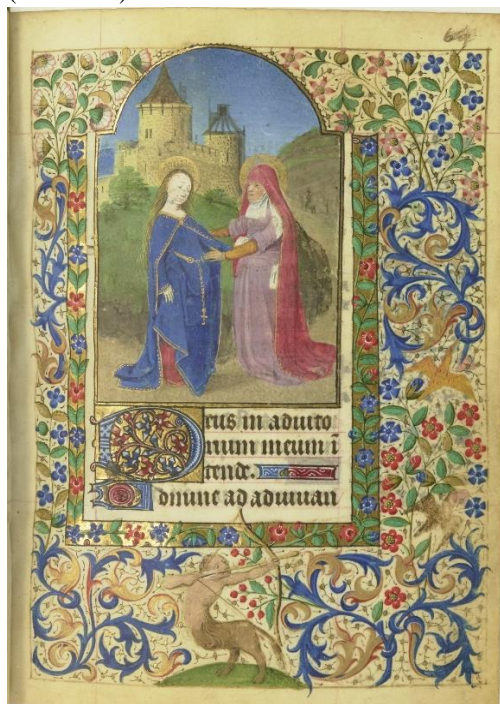 Deus in adiuto
rium meum ī
tende.
Domine ad adiuuan